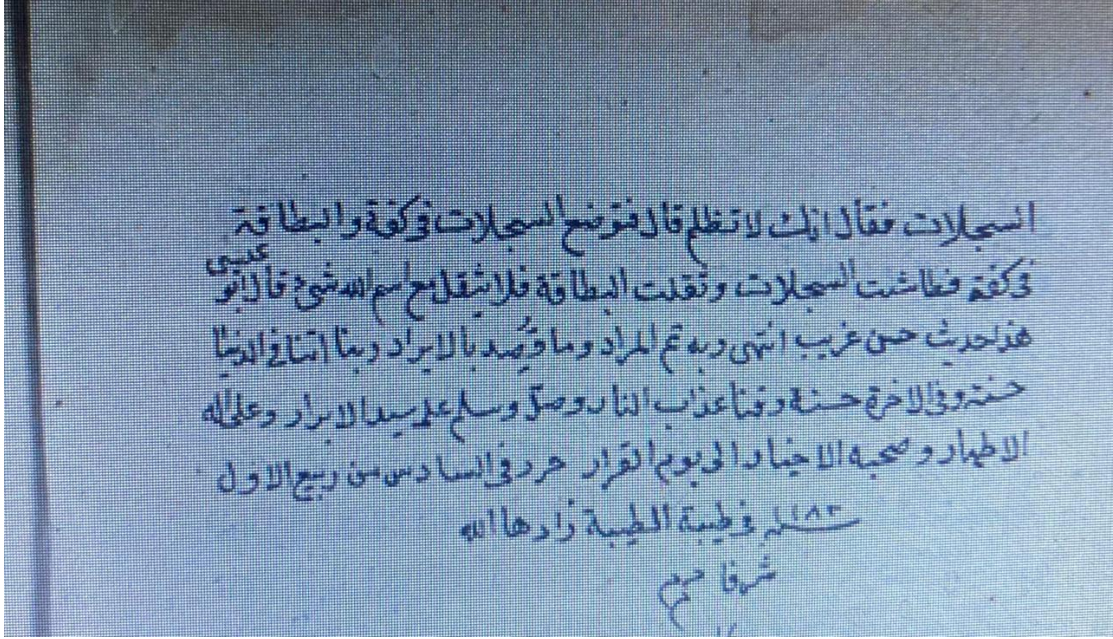 السجلات فقال انك لا تظلم قال فتوضع السجلات في كفة والبطاقة
في كفة فطاشت السجلات وثقلت البطاقة فلا يثقل مع اسم الله شيء قال ابو عيسى
هذا حديث حسن غريب انتهى وبه تم المراد وما قصد بالايراد ربنا اتنا في الدنيا
حسنة وفي الاخرة حسنة وقنا عذاب النار وصل وسلم على سيد الابرار وعلى اله
الاطهار وصحبه الاخيار الى يوم القرار حرر في السادس من ربيع الاول
سنة ١١٨٣ في طيبة الطيبة زادها الله
شرفا